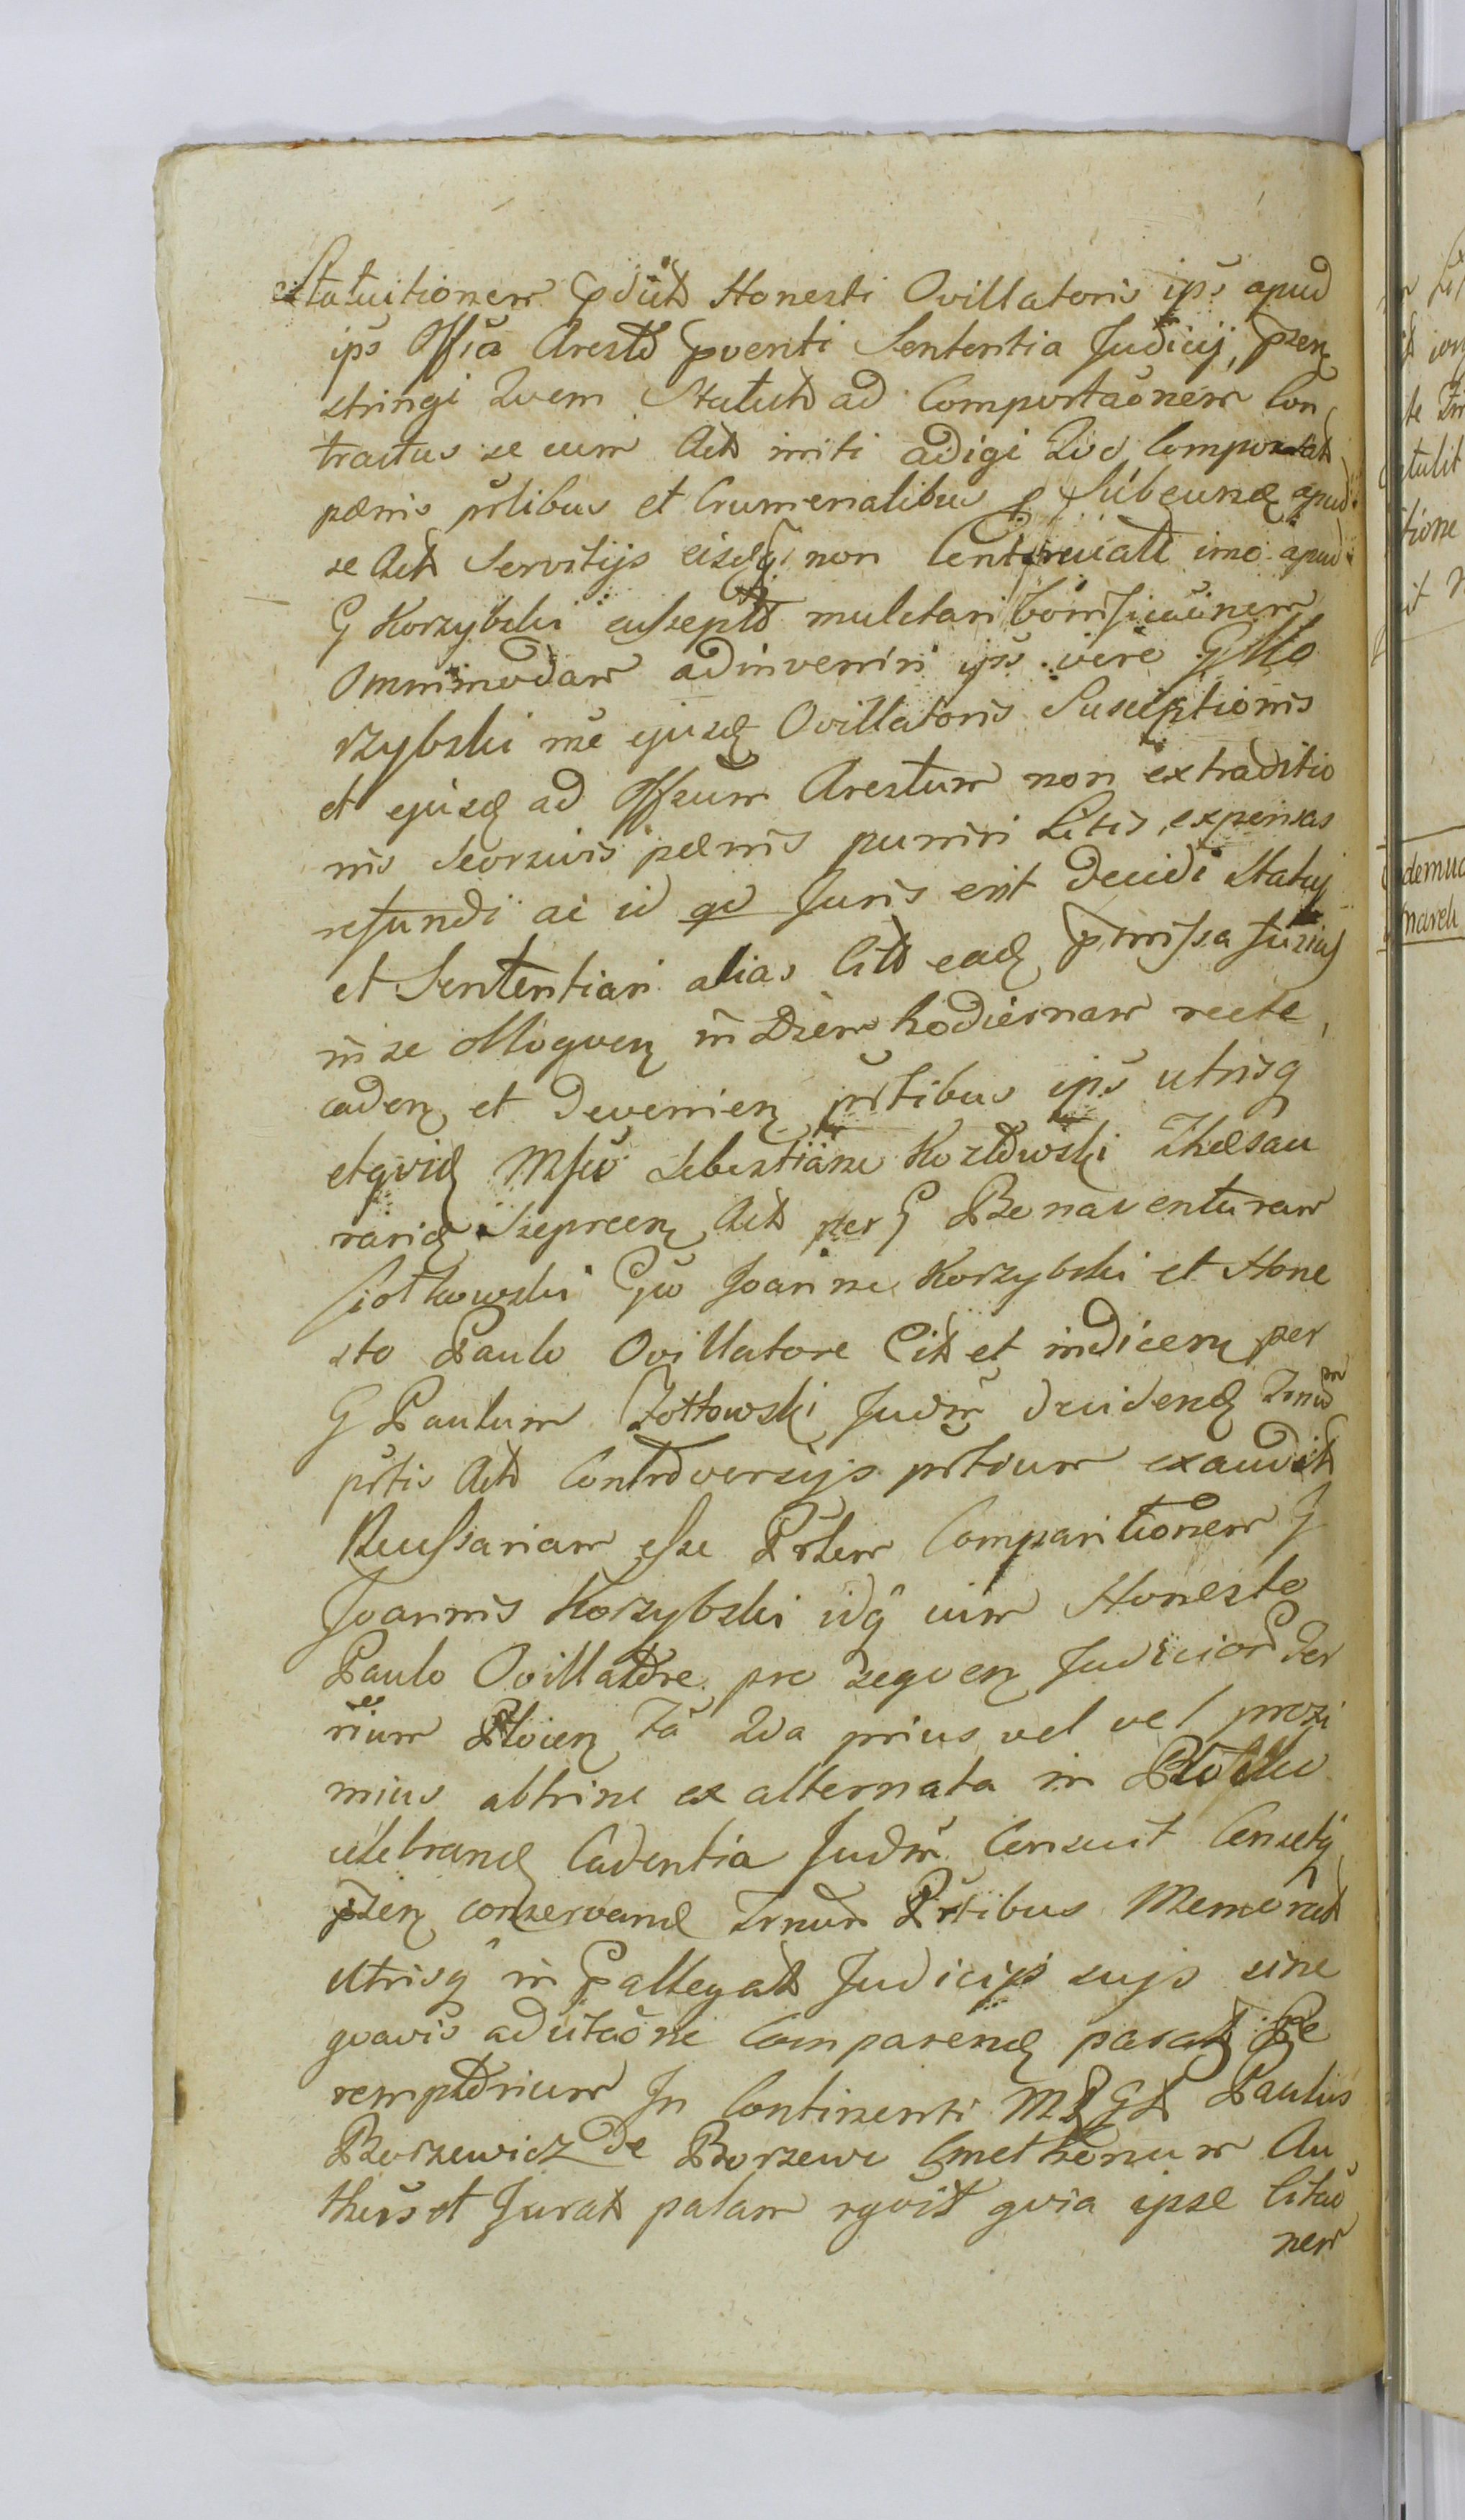 Statuitionem Honesti Ovillatoris ips apud
ips Offia Arest pventi Sententia Judicij, psen
stringi Statut ad Comportaonem Con
tractus se cum Act initi adigi Comportat
pœnis prlibus et Crumenalibus Subeund apud
se Act Servitijs eisdq non Continuati imo apud
G Korzybski mulctari
Omnimodam adinveniri ips vero G Ko
rzybski ejusd Ovillatoris Susceptionis
et ejusd ad Offsum Arestum non extraditio
nis seorsivis pœnis puniri Litis expensas
refundi ac id qd Juris erit decidi Statuj
et Sententiari alias Citt ead pmissa fusius
in se oblogven in hodiernam recte
caden et devenien prtibus ips utrisq
etqvid Sebestiane Kozłowski Thesau
rarid Act per G Bonaventuram
Ciołkowski Gso Joanne Korzybski et Hone
sto Paulo Ovillatore Cit et indicen per
G Paulum Żółtowski Judm decidend
prtis Act Controversijs prtium exaudit
Necessariam esse Prlem Comparitionem G
Joannis Korzybski idq cum Honesto
Paulo Ovillatore pro seqven Judicior Ter
rium Plocen Ta prius vel vel proxi
mius abtrine ex alternata in
celebrand Cadentia Judm Censuit Censetq
psen conservand Trnum Prtibus Memorat
Utrisq in pallegat Judicijs sujs sine
qvavis aditaone Comparend parat Pe
remptorium In Continenti Paulus
Borzewicz de Borzewo Cmethonum Au
thus et Jurat palam rgvit qvia ipse Citao
nem